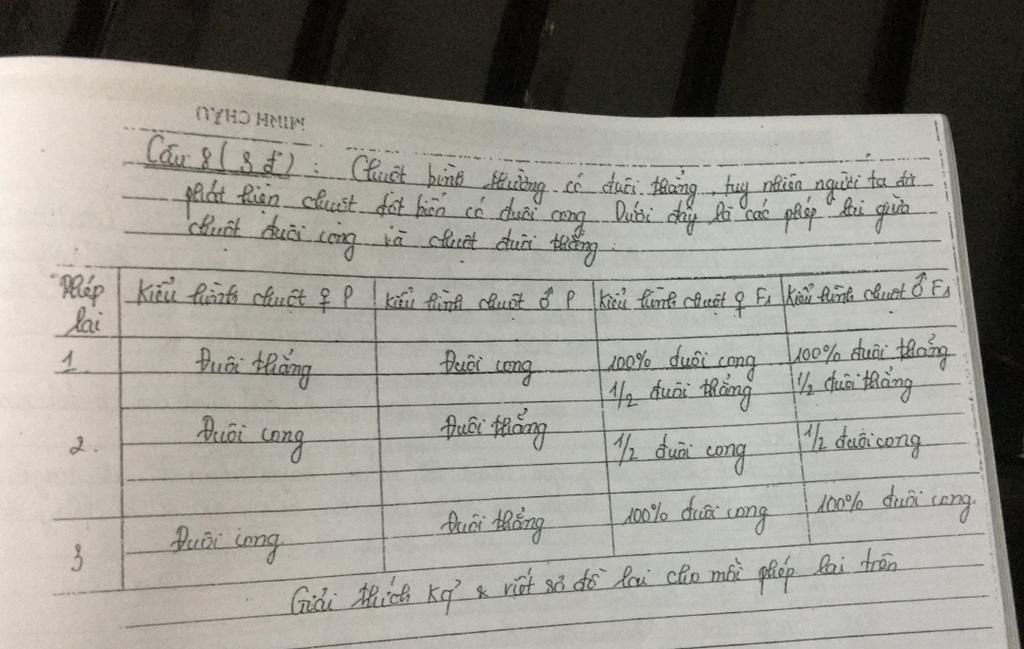 MINH CHÂU
Câu 8 (3 đ) : Chuột bình thường có đuôi thẳng, tuy nhiên người ta đã
phát hiện chuột đột biến có đuôi cong. Dưới đây là các phép lai giữa
chuột đuôi cong và chuột đuôi thẳng.
Phép lai Kiểu hình chuột ♀ P Kiểu hình chuột ♂ P Kiểu hình chuột ♀ F1 Kiểu hình chuột ♂ F1
1. Đuôi thẳng Đuôi cong 100% đuôi cong 100% đuôi thẳng
1/2 đuôi thẳng 1/2 đuôi thẳng
2. Đuôi cong Đuôi thẳng 1/2 đuôi cong 1/2 đuôi cong
3 Đuôi cong Đuôi thẳng 100% đuôi cong 100% đuôi cong
Giải thích kq' & viết sơ đồ lai cho mỗi phép lai trên